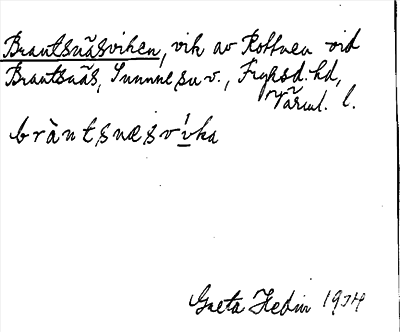 Brantsnäsviken, vik av Rottnen vid
Brantsnäs, Sunne sn v., Fryksd. hd,
Värml. l.
bràntsnæsvi̲ka
Greta Hedin 1934